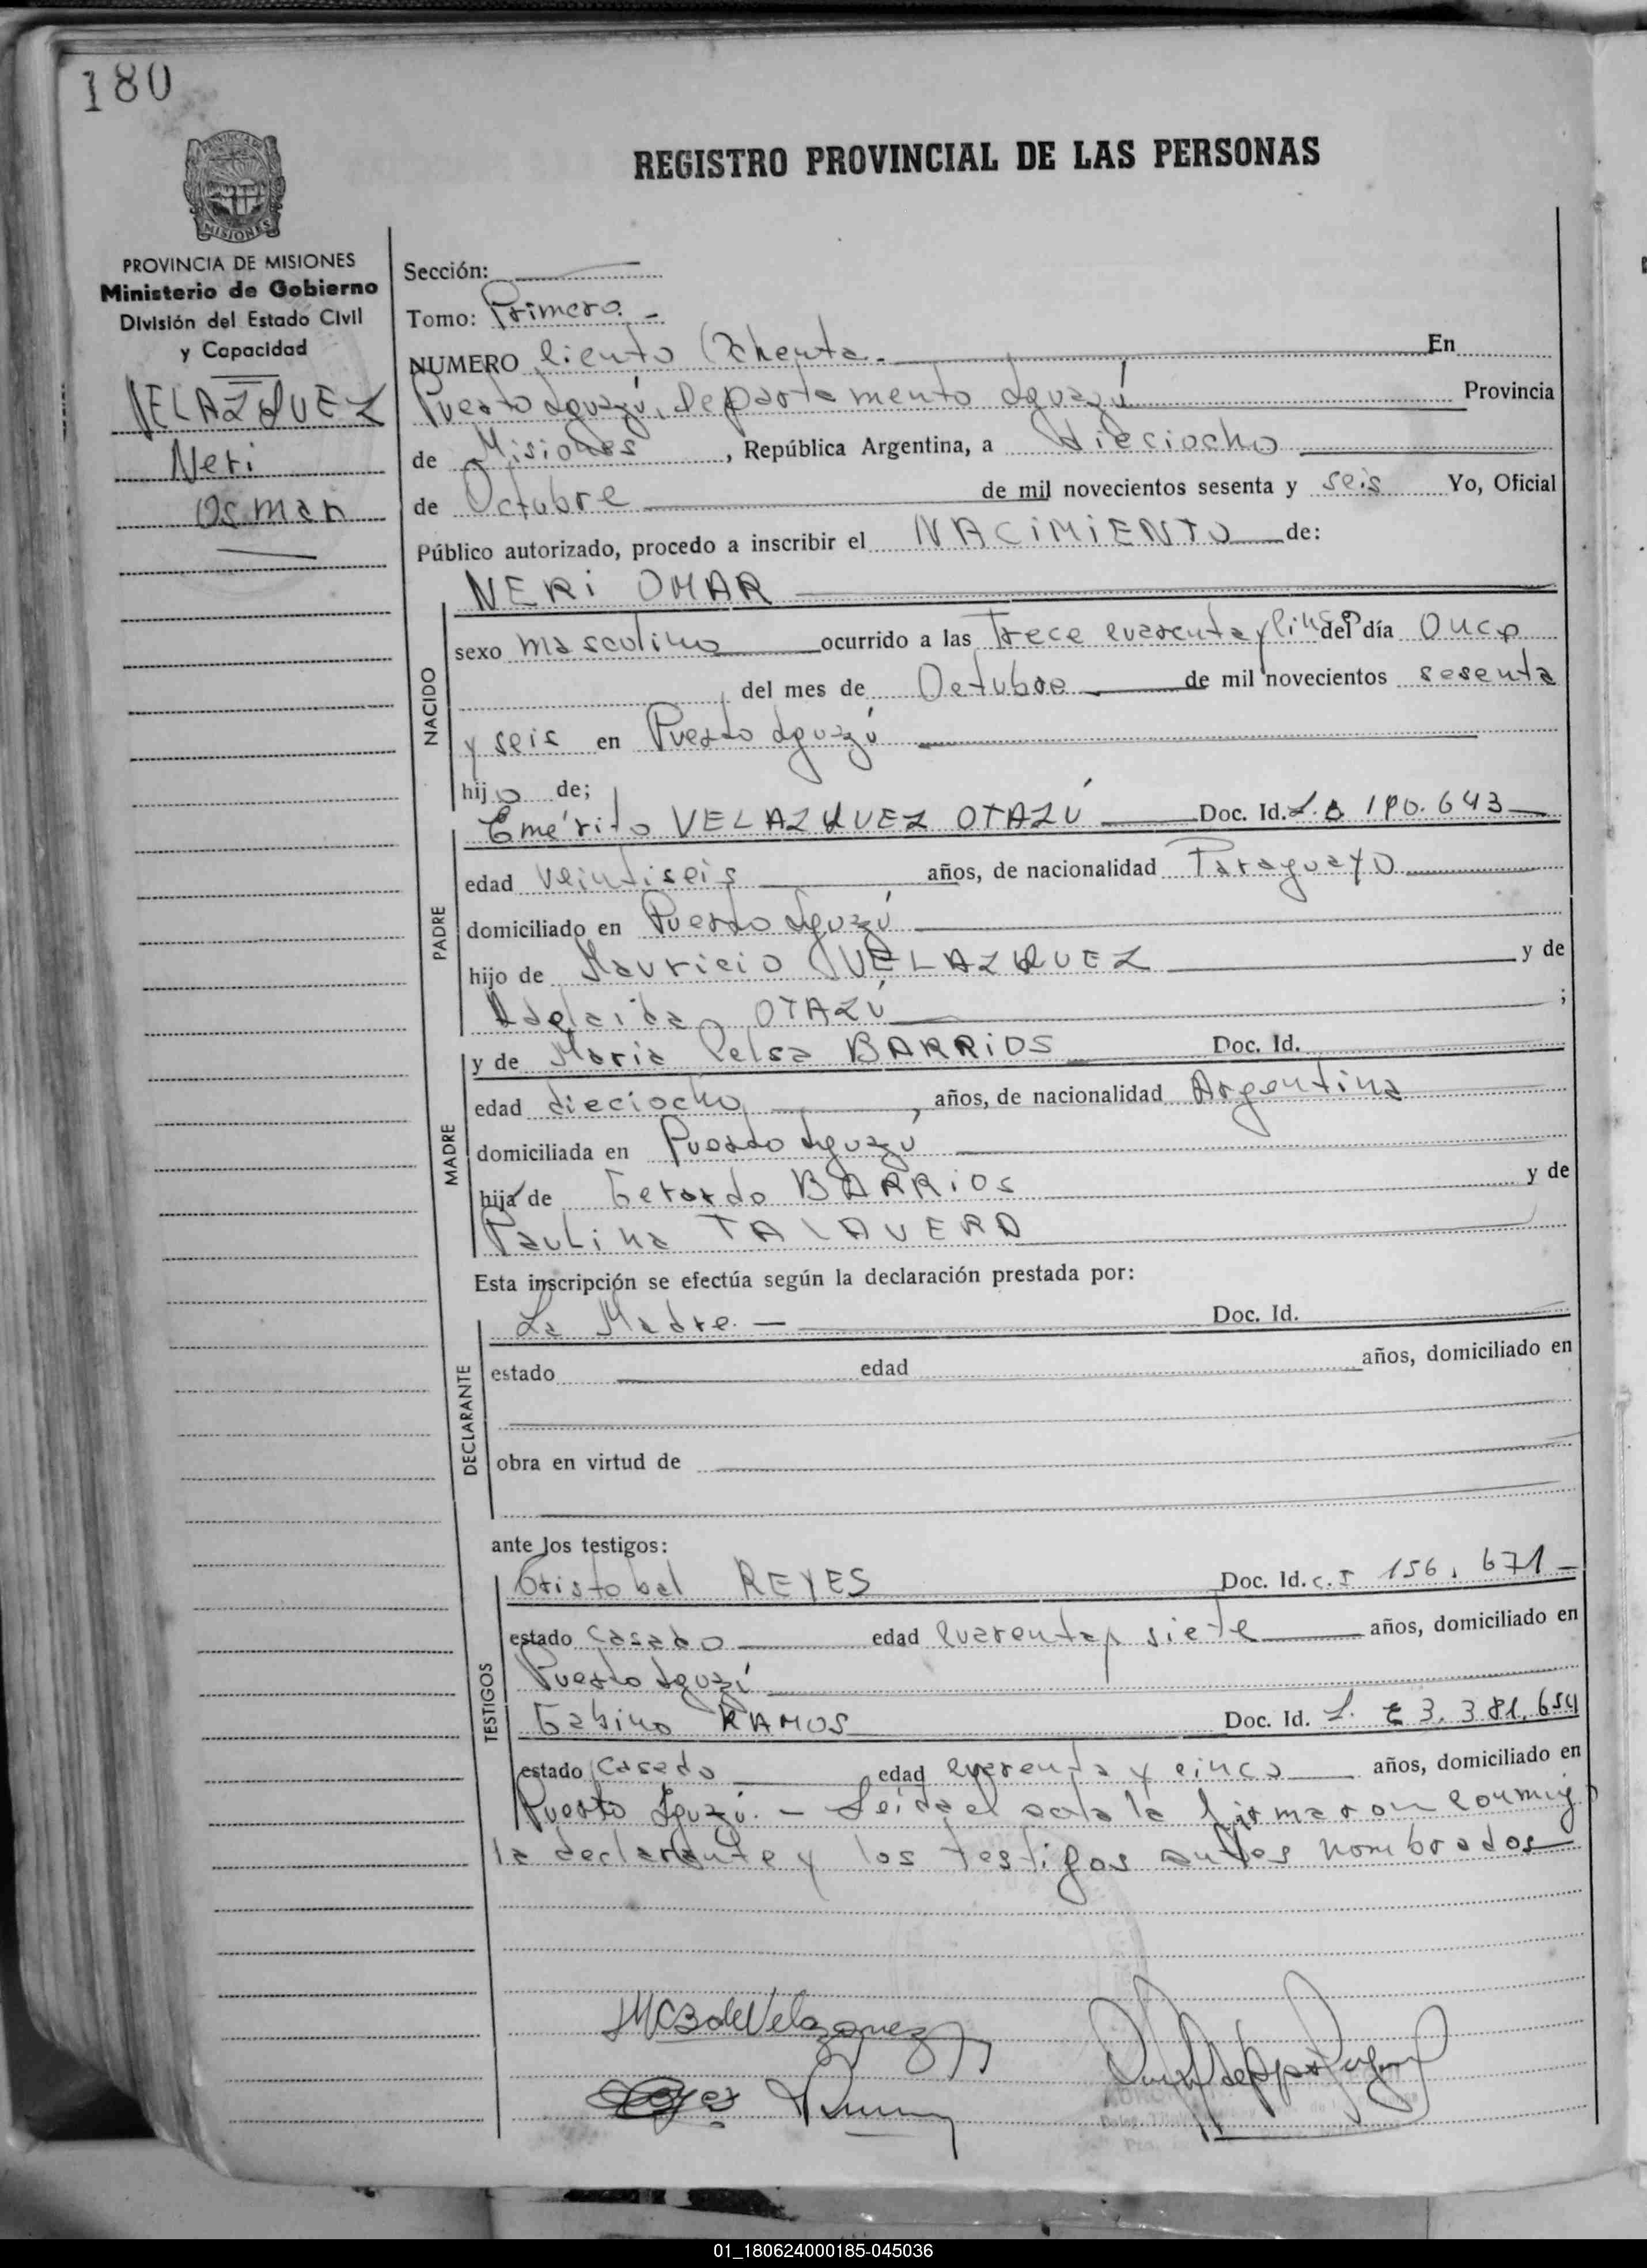 180
REGISTRO PROVINCIAL DE LAS PERSONAS
PROVINCIA DE MISIONES
Ministerio de Gobierno
División del Estado Civil
y Capacidad
VELAZQUEZ
Neri
Osmar
Sección:
Tomo: Primero. -
NUMERO Ciento Ochenta.- En
Puerto Iguazú, Departamento Iguazú Provincia
de Misiones, República Argentina, a dieciocho
de Octubre de mil novecientos sesenta y seis Yo, Oficial
Público autorizado, procedo a inscribir el NACIMIENTO de:
NERI OMAR
NACIDO
sexo masculino ocurrido a las Trece cuarenta y Cinco del día Once
del mes de Octubre de mil novecientos sesenta
y seis en Puerto Iguazú
hijo de;
PADRE
Emérito VELAZQUEZ OTAZÚ Doc. Id. 190.643
edad veintiseis años, de nacionalidad Paraguayo
domiciliado en Puerto Iguazú
hijo de Mauricio VELAZQUEZ y de
Adelaida OTAZÚ ;
MADRE
y de Maria Celsa BARRIOS Doc. Id.
edad dieciocho, años, de nacionalidad Argentina
domiciliada en Puerto Iguazú
hija de Gerardo BARRIOS y de
Paulina TALAVERA
Esta inscripción se efectúa según la declaración prestada por:
DECLARANTE
La Madre. — Doc. Id.
estado edad años, domiciliado en
obra en virtud de
ante los testigos:
TESTIGOS
Cristobal REYES Doc. Id. C.I 156.671-
estado casado edad cuarenta y siete años, domiciliado en
Puerto Iguazú
Gabino RAMOS Doc. Id. L. E 3.381.654
estado Casado edad cuarenta y cinco años, domiciliado en
Puerto Iguazú. - Leida el acta la firmaron conmigo
la declarante y los testigos antes nombrados
MCB de Velazquez
01_180624000185-045036